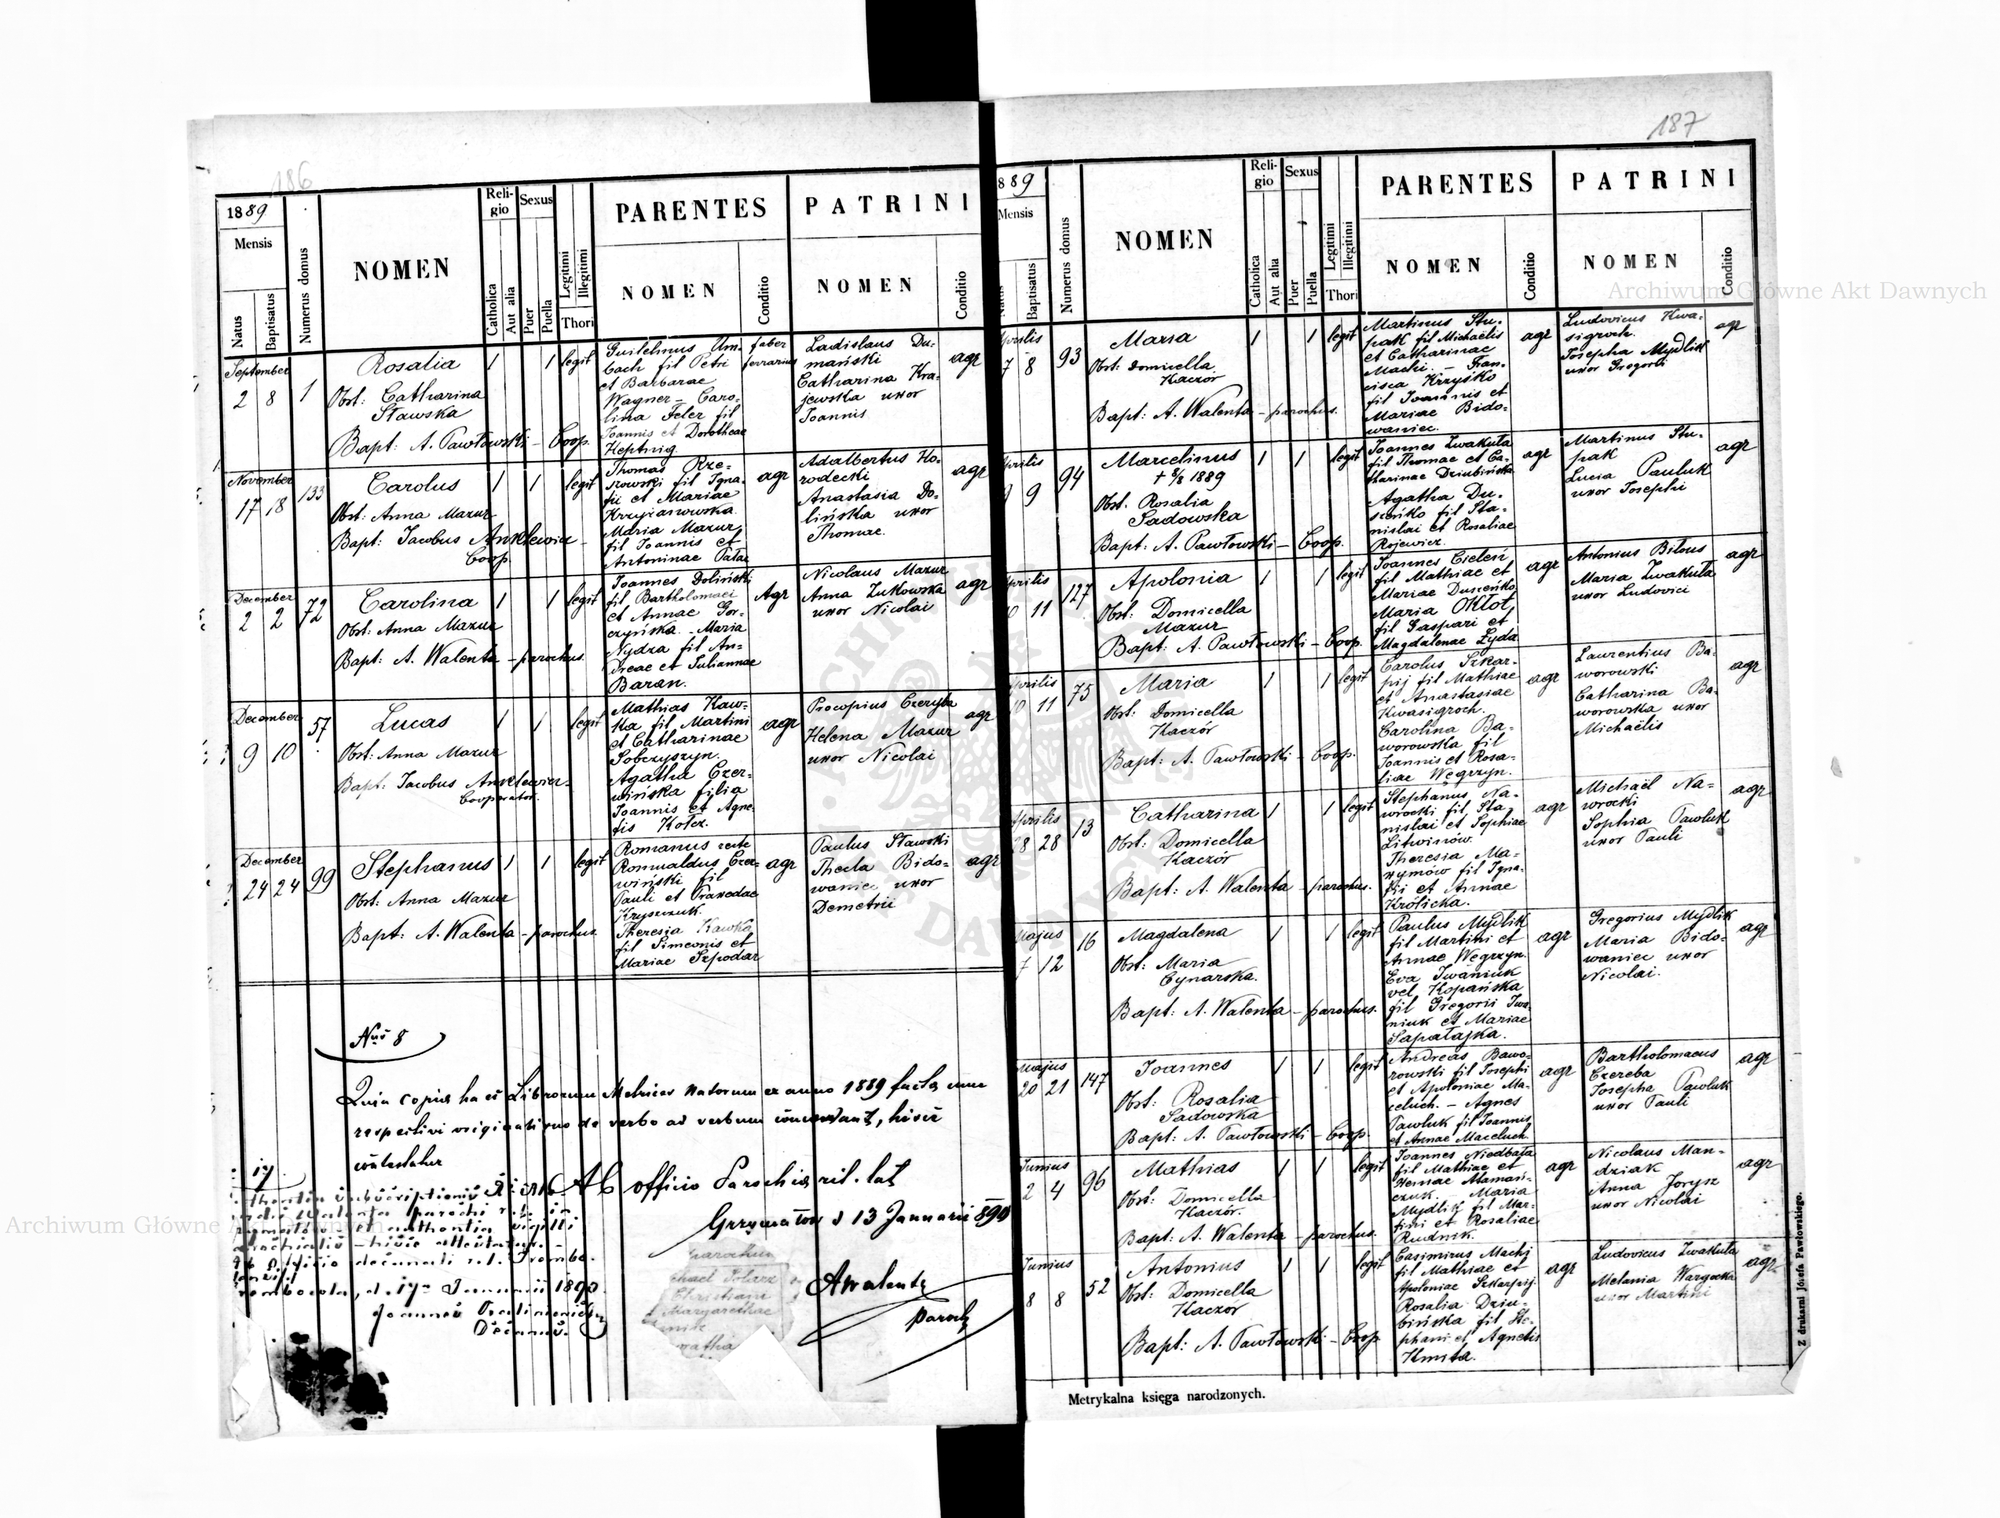 186
1889
Mensis
Natus
Baptisatus
Numerus domus
NOMEN
Reli-
gio
Catholica
Aut alia
Sexus
Puer
Puella
Legitimi
Illegitimi
Thori
PARENTES
NOMEN
Conditio
PATRINI
NOMEN
Conditio
September
2 8 1
Rosalia
1 1 legit
Obst: Catharina
Stawska
Bapt: A. Pawłowski – Coop.
Guilelmus Um-
bach fil Petri
et Barbarae
Wagner – Caro-
lina Feler fil
Joannis et Dorotheae
Heptnig
faber
ferrarius
Ladislaus Du-
mański
Catharina Kra-
jewska uxor
Joannis
agr
November
17 18 133
Carolus
1 1 legit
Obst: Anna Mazur
Bapt: Jacobus Ankiewicz –
Coop.
Thomas Rze-
szowski fil Igna-
tii et Mariae
Krzyżanowska.
Maria Mazur
fil Joannis et
Antoninae
agr
Adalbertus Ho-
rodecki
Anastasia Do-
lińska uxor
Thomae.
agr
December
2 2 72
Carolina
1 1 legit
Obst: Anna Mazur
Bapt: A. Walenta – parochus.
Joannes Doliński
fil Bartholomaei
et Annae Gor-
czyńska. – Maria
Nydza fil An-
dreae et Juliannae
Baran.
Agr
Nicolaus Mazur
Anna Żukowska
uxor Nicolai
agr
December
9 10 57
Lucas
1 1 legit
Obst: Anna Mazur
Bapt: Jacobus Ankiewicz –
Cooperator.
Mathias Kaw-
ka fil Martini
et Catharinae
Sobczyszyn.
Agatha Czer-
wińska filia
Joannis et Agne-
tis Kołcz.
agr
Procopius Czeryba
Helena Mazur
uxor Nicolai
agr
December
24 24 99
Stephanus
1 1 legit
Obst: Anna Mazur
Bapt: A. Walenta – parochus.
Romanus recte
Romualdus Czer-
wiński fil
Pauli et Praxedae
Kryszczuk.
Theresia Kawka
fil Simeonis et
Mariae Szpodar
agr
Paulus Stawski
Thecla Bido-
waniec uxor
Demetrii
agr
Nus 8
Librorum Metrices Natorum ex anno 1889 facta cum
respectivi de verbo ad verbum
Ab officio Parochia rit. lat
Grzymałow d 13 Januarii 1890
AWalenta
paroch
Januarii 1890
Joannes
Decanus.
187
1889
Mensis
Natus
Baptisatus
Numerus domus
NOMEN
Reli-
gio
Catholica
Aut alia
Sexus
Puer
Puella
Legitimi
Illegitimi
Thori
PARENTES
NOMEN
Conditio
PATRINI
NOMEN
Conditio
Aprilis
7 8 93
Maria
1 1 legit
Obst: Domicella
Kaczór
Bapt: A. Walenta – parochus.
Martinus Stu-
pak fil Michaelis
et Catharinae
Machi. – Fran-
cisca Krzyśko
fil Joannis et
Mariae Bido-
waniec.
agr
Ludovicus Kwa-
sigroch.
Josepha Mydlik
uxor Gregorii
agr
Aprilis
9 94
Marcelinus
+ 8/8 1889
1 1 legit
Obst: Rosalia
Sadowska
Bapt: A. Pawłowski – Coop.
Joannes Zwakuta
fil Thomae et Ca-
tharinae Dziubińska
Agatha Du-
szeńko fil Sta-
nislai et Rosaliae
Rojewicz.
agr
Martinus Stu-
pak
Lucia Pauluk
uxor Josephi
agr
Aprilis
10 11 127
Apolonia
1 1 legit
Obst: Domicella
Mazur
Bapt: A. Pawłowski – Coop.
Joannes Cieleń
fil Mathiae et
Mariae Duszeńko
Maria Okłot,
fil Gaspari et
Magdalenae Łyda
agr
Antonius Bilous
Maria Zwakuta
uxor Ludovici
agr
Aprilis
10 11 75
Maria
1 1 legit
Obst: Domicella
Kaczór
Bapt: A. Pawłowski – Coop.
Carolus Szkar-
pij fil Mathiae
et Anastasiae
Kwasigroch.
Carolina Ba-
worowska fil
Joannis et Rosa-
liae Węgrzyn.
agr
Laurentius Ba-
worowski
Catharina Ba-
worowska uxor
Michaëlis
agr
Aprilis
28 28 13
Catharina
1 1 legit
Obst: Domicella
Kaczór
Bapt: A. Walenta – parochus.
Stephanus Na-
wrocki fil Sta-
nislai et Sophiae
Litwinów.
Theresia Ma-
xymów fil Igna-
tii et Annae
Królicka.
agr
Michaël Na-
wrocki
Sophia Pawluk
uxor Pauli
agr
Majus
7 12 16
Magdalena
1 1 legit
Obst: Maria
Cynarska.
Bapt: A. Walenta – parochus.
Paulus Mydlik
fil Martini et
Annae Węgrzyn.
Eva Iwaniuk
vel Kopańska
fil Gregorii Iwa-
niuk et Mariae
Sapałajka.
agr
Gregorius Mydlik
Maria Bido-
waniec uxor
Nicolai.
agr
Majus
20 21 147
Joannes
1 1 legit
Obst: Rosalia
Sadowska
Bapt: A. Pawłowski – Coop.
Andreas Bawo-
rowski fil Josephi
et Apoloniae Ma-
celuch. – Agnes
Pawluk fil Joannis
et Annae Maceluch.
agr
Bartholomaeus
Czereba
Josepha Pawluk
uxor Pauli
agr
Junius
2 4 96
Mathias
1 1 legit
Obst: Domicella
Kaczór.
Bapt: A. Walenta – parochus.
Joannes Niedbała
fil Mathiae et
Xeniae Ataman-
czuk. Maria
Mydlik fil Mar-
tini et Rosaliae
Rudnik.
agr
Nicolaus Man-
dziak
Anna Jorysz
uxor Nicolai
agr
Junius
8 8 52
Antonius
1 1 legit
Obst: Domicella
Kaczór
Bapt: A. Pawłowski – Coop
Casimirus Machi
fil Mathiae et
Apoloniae Szkarpij
Rosalia Dziu-
bińska fil Ste-
phani et Agnetis
Kmita.
agr
Ludovicus Zwakuta
Melania Wargocka
uxor Martini
agr
Metrykalna księga narodzonych.
Z drukarni Józefa Pawłowskiego.
Archiwum Główne Akt Dawnych
Archiwum Główne Akt Dawnych